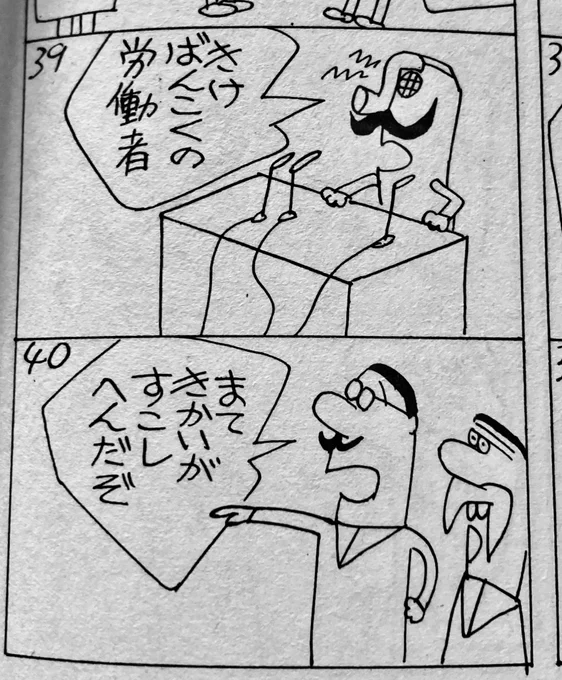 39
きけ
ばんこくの
労働者
40
まて
きかいが
すこし
へんだぞ